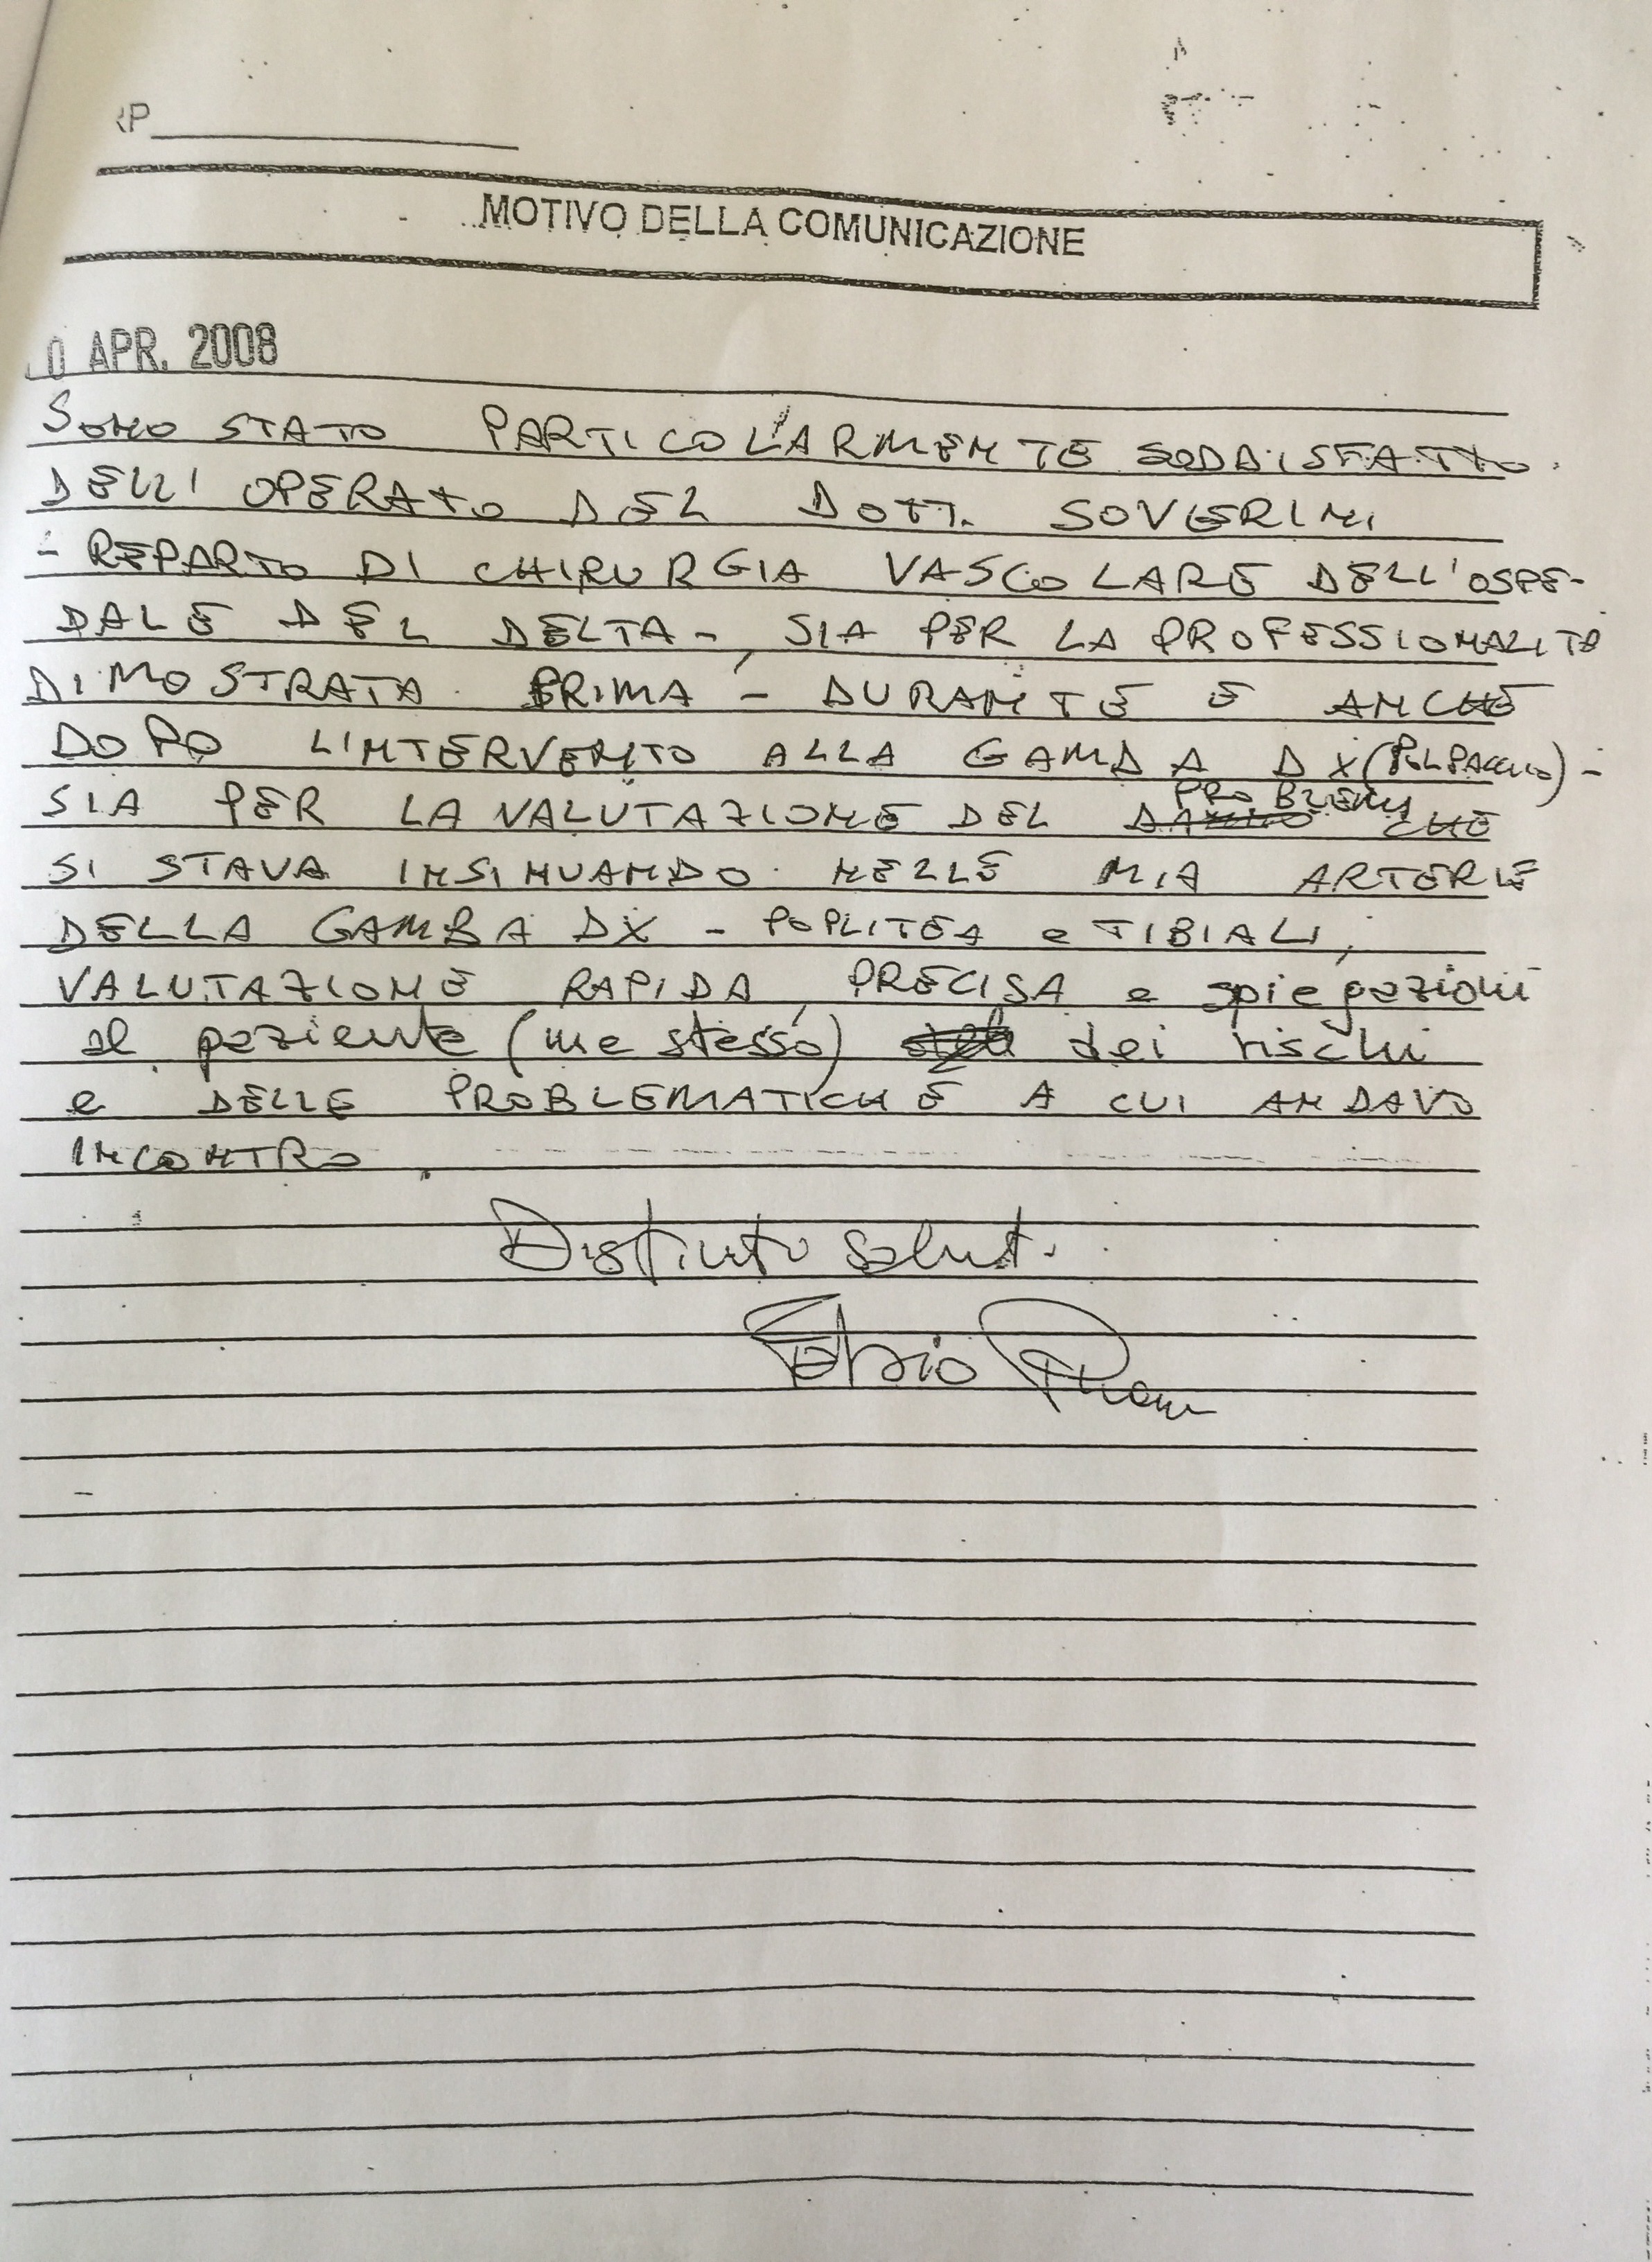 RP
MOTIVO DELLA COMUNICAZIONE
0 APR. 2008
SONO STATO PARTICOLARMENTE SODDISFATTO
DELL'OPERATO DEL DOTT. SOVERINI
- REPARTO DI CHIRURGIA VASCOLARE DELL'OSPE-
DALE DEL DELTA -, SIA PER LA PROFESSIONALITÀ
DIMOSTRATA PRIMA - DURANTE E ANCHE
DOPO L'INTERVENTO ALLA GAMBA DX (POLPACCIO) -
SIA PER LA VALUTAZIONE DEL PROBLEMA CHE
SI STAVA INSINUANDO NELLE MIA ARTERIE
DELLA GAMBA DX - POPLITEA e TIBIALI,
VALUTAZIONE RAPIDA, PRECISA e spiegazioni
al paziente (me stesso) dei rischi
e DELLE PROBLEMATICHE A CUI ANDAVO
INCONTRO.
Distinti saluti
Fabio